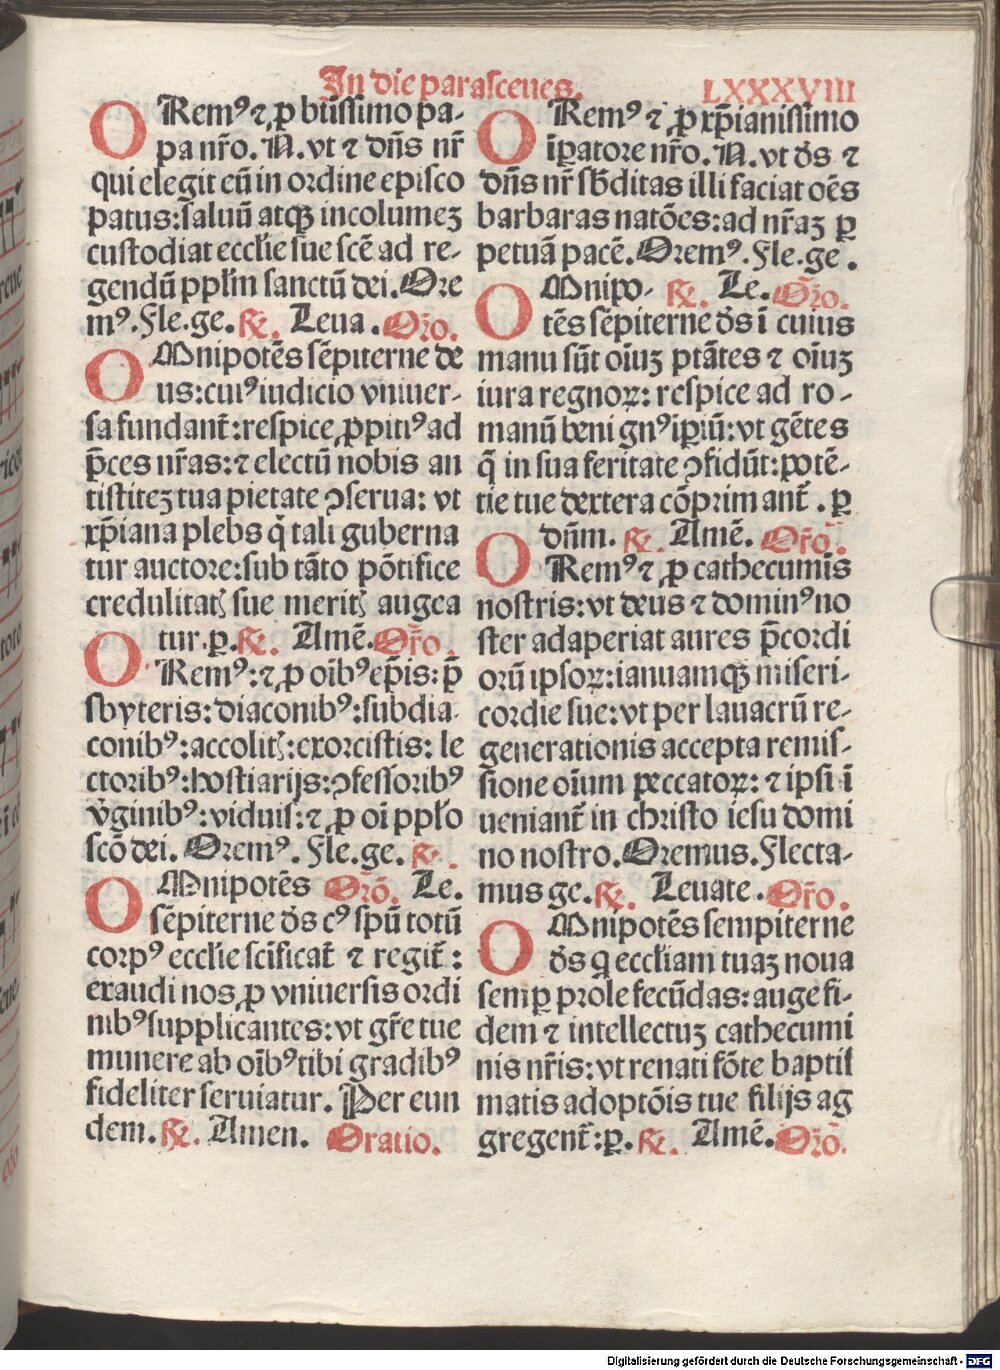 In die parasceues. LXXXVIII
ORemꝰ ⁊ ꝓ btissimo pa-
pa nr̄o. N. vt ⁊ dn̄s nr̄
qui elegit eū in ordine episco
patus: saluū atqꝫ incolumeꝫ
custodiat eccl̄ie sue scē ad re-
gendū ppl̄m sanctū dei. Ore
mꝰ. Fle. ge. ℟. Leua. Or̄o.
OMnipotēs sēpiterne de
us: cuiꝰ iudicio vniuer-
sa fundant̄: respice ꝓpitiꝰ ad
p̄ces nr̄as: ⁊ electū nobis an
tistiteꝫ tua pietate ꝯserua: vt
xp̄iana plebs q̄ tali guberna
tur auctore: sub tāto pōtifice
credulitatꝭ sue meritꝭ augea
tur. ꝑ. ℟. Amē. Or̄o.
ORemꝰ: ⁊ ꝓ oībꝰ ep̄is: p̄
sbyteris: diaconibꝰ: subdia-
conibꝰ: accolitꝭ: exorcistis: le
ctoribꝰ: hostiarijs: ꝯfessoribꝰ
v̄ginibꝰ: viduis: ⁊ ꝓ oī ppl̄o
scō dei. Oremꝰ. Fle. ge. ℟.
OMnipotēs Orō. Le.
sēpiterne ds̄ cꝰ spū totū
corpꝰ eccl̄ie scīficat̄ ⁊ regit̄:
exaudi nos ꝓ vniuersis ordi
nibꝰ supplicantes: vt gr̄e tue
munere ab oībꝰ tibi gradibꝰ
fideliter seruiatur. Per eun
dem. ℟. Amen. Oratio.
ORemꝰ ⁊ ꝓ xp̄ianissimo
īꝑatore nr̄o. N. vt ds̄ ⁊
dn̄s nr̄ sb̄ditas illi faciat oēs
barbaras natōes: ad nr̄aꝫ ꝑ
petuā pacē. Oremꝰ. Fle. ge.
OMnipo- ℟. Le. Or̄o.
tēs sēpiterne ds̄ ī cuius
manu sūt oīuꝫ ptātes ⁊ oīuꝫ
iura regnoꝝ: respice ad ro-
manū benignꝰ īꝑiū: vt gētes
q̄ in sua feritate ꝯfidūt: potē-
tie tue dextera cōprimant̄. ꝑ
dn̄m. ℟. Amē. Or̄o.
ORemꝰ ⁊ ꝓ cathecumīs
nostris: vt deus ⁊ dominꝰ no
ster adaperiat aures p̄cordi
orū ipsoꝝ: ianuamqꝫ miseri-
cordie sue: vt per lauacrū re-
generationis accepta remis-
sione oīum peccatoꝝ: ⁊ ipsi ī
ueniant̄ in christo iesu domi
no nostro. Oremus. Flecta-
mus ge. ℟. Leuate. Or̄o.
OMnipotēs sempiterne
ds̄ q eccl̄iam tuaꝫ noua
semꝑ prole fecūdas: auge fi-
dem ⁊ intellectuꝫ cathecumi
nis nr̄is: vt renati fōte baptis
matis adoptōis tue filijs ag
gregent̄: ꝑ. ℟. Amē. Or̄o.
Digitalisierung gefördert durch die Deutsche Forschungsgemeinschaft - DFG